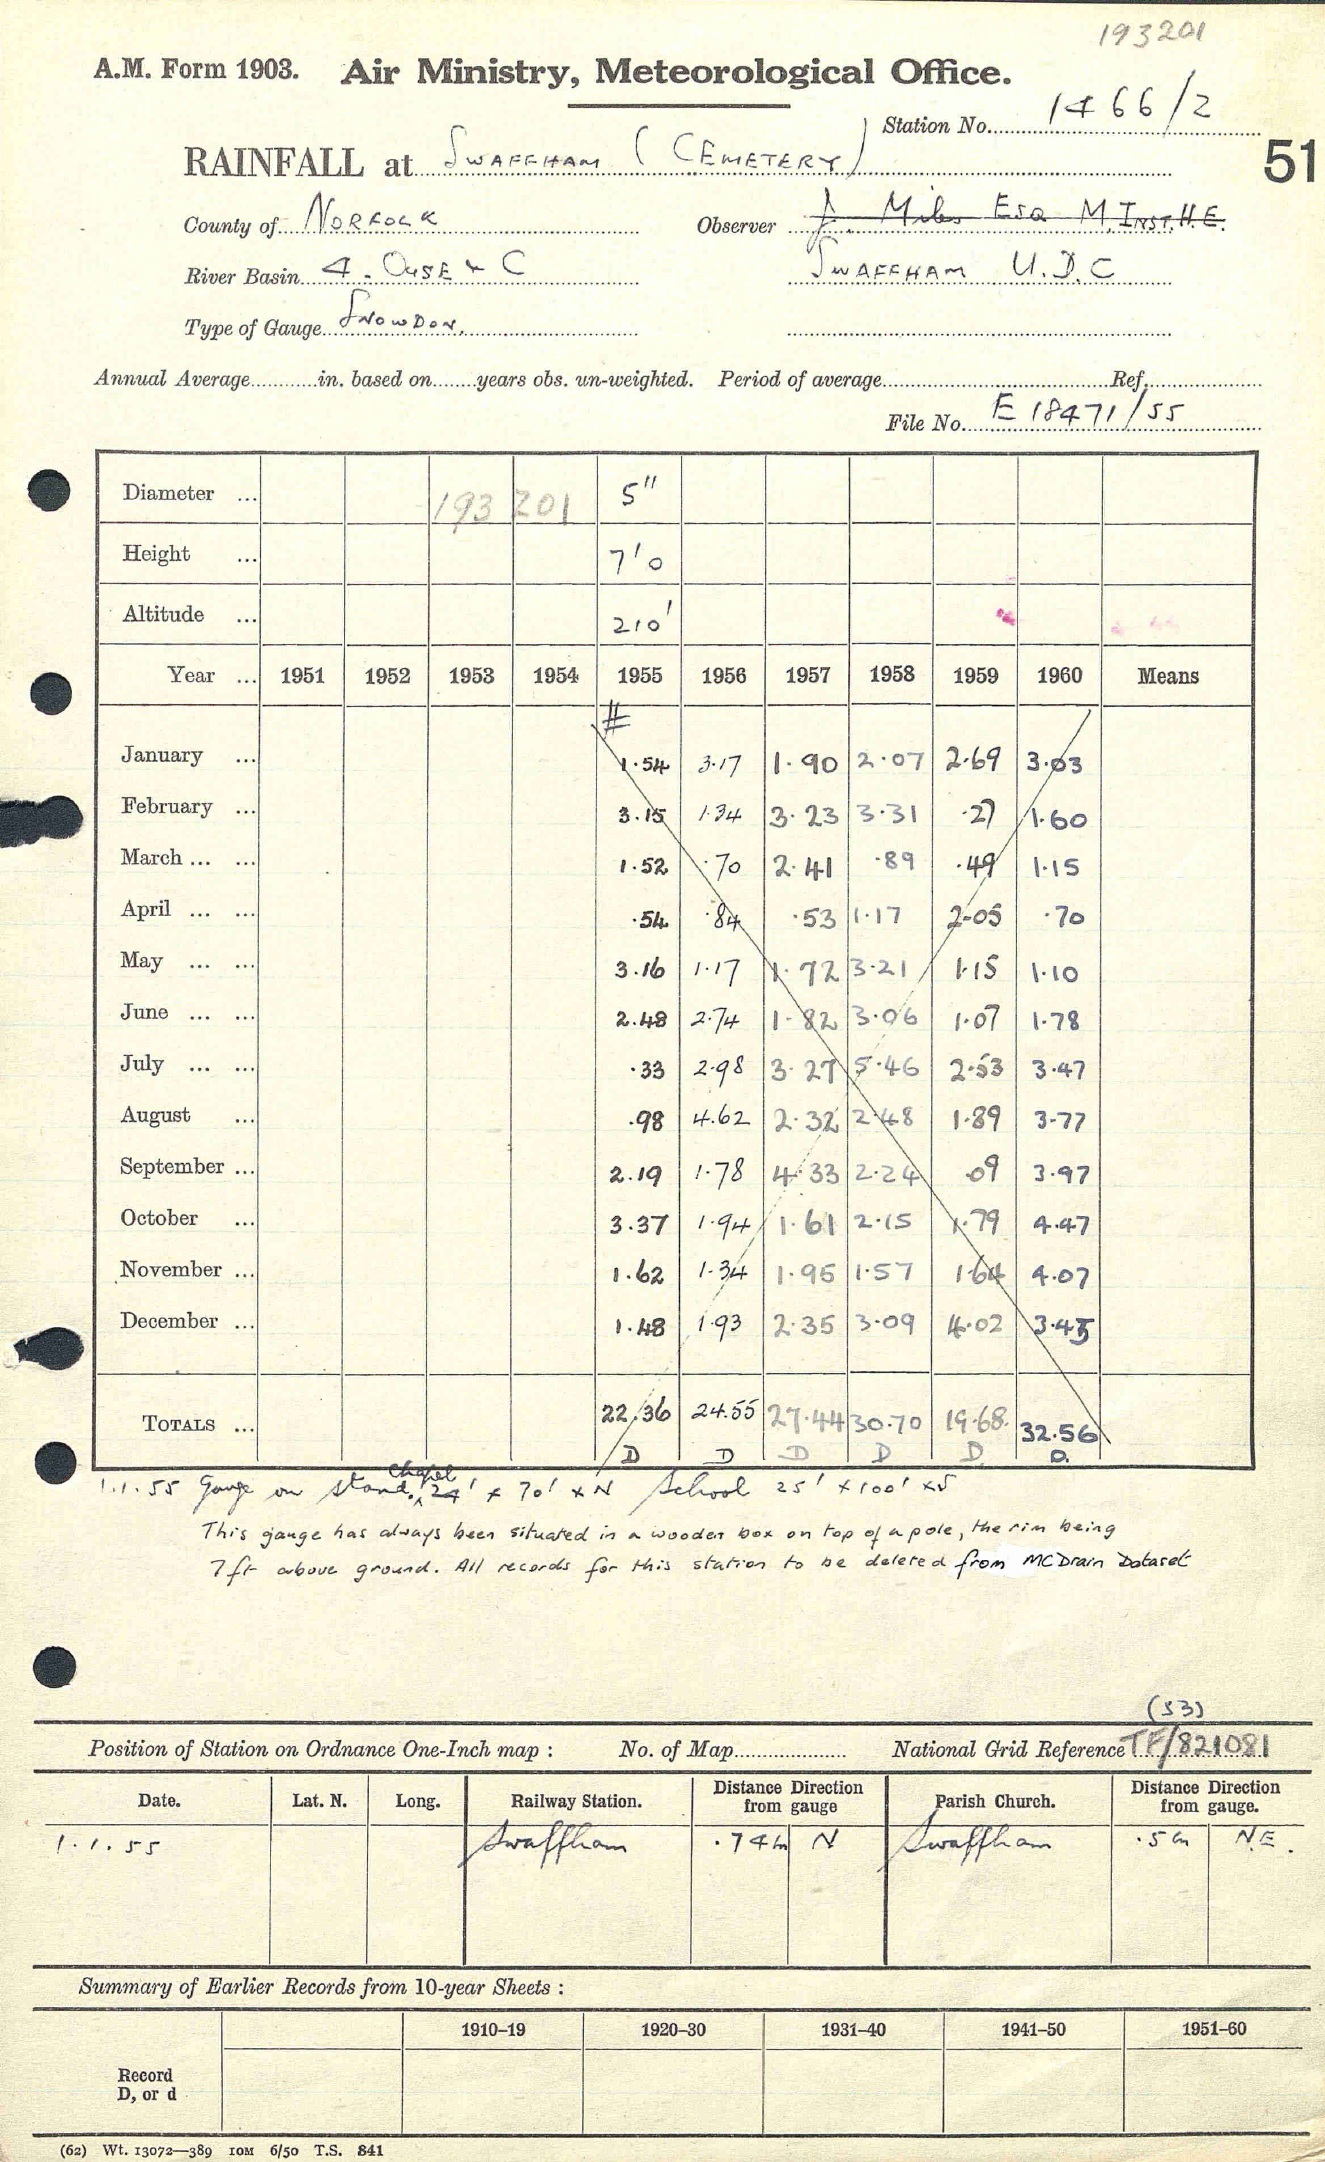 193201
A.M. Form 1903. Air Ministry, Meteorological Office.
Station No. 1466/2
RAINFALL at SWAFFHAM (CEMETERY)
51
County of NORFOLK Observer J. Miles Esq M.INST.H.E.
River Basin 4. OUSE & C SWAFFHAM U.D.C
Type of Gauge SNOWDON.
Annual Average in. based on years obs. un-weighted. Period of average Ref.
File No. E 18471/55
Diameter ... 193 201 5"
Height ... 7'0
Altitude ... 210'
Year ... 1951 1952 1953 1954 1955 1956 1957 1958 1959 1960 Means
#
January ... 1.54 3.17 1.90 2.07 2.69 3.03
February ... 3.15 1.34 3.23 3.31 .27 1.60
March ... ... 1.52 .70 2.41 .89 .49 1.15
April ... ... .54 .84 .53 1.17 2.05 .70
May ... ... 3.16 1.17 1.72 3.21 1.15 1.10
June ... ... 2.48 2.74 1.82 3.06 1.07 1.78
July ... ... .33 2.98 3.27 5.46 2.53 3.47
August ... .98 4.62 2.32 2.48 1.89 3.77
September ... 2.19 1.78 4.33 2.24 .09 3.97
October ... 3.37 1.94 1.61 2.15 1.79 4.47
November ... 1.62 1.34 1.95 1.57 1.64 4.07
December ... 1.48 1.93 2.35 3.09 4.02 3.45
TOTALS ... 22.36 24.55 27.44 30.70 19.68 32.56
D D D D D D.
1.1.55 Gauge on stand. chapel 24' x 70' x N School 25' x 100' x S
This gauge has always been situated in a wooden box on top of a pole, the rim being
7ft above ground. All records for this station to be deleted from MCDrain Dataset
(53)
Position of Station on Ordnance One-Inch map : No. of Map National Grid Reference TF/821081
Date. Lat. N. Long. Railway Station. Distance from gauge Direction Parish Church. Distance from gauge. Direction
1.1.55 Swaffham .74m N Swaffham .5m N.E.
Summary of Earlier Records from 10-year Sheets :
1910–19 1920–30 1931–40 1941–50 1951–60
Record
D, or d
(62) Wt. 13072—389 10M 6/50 T.S. 841